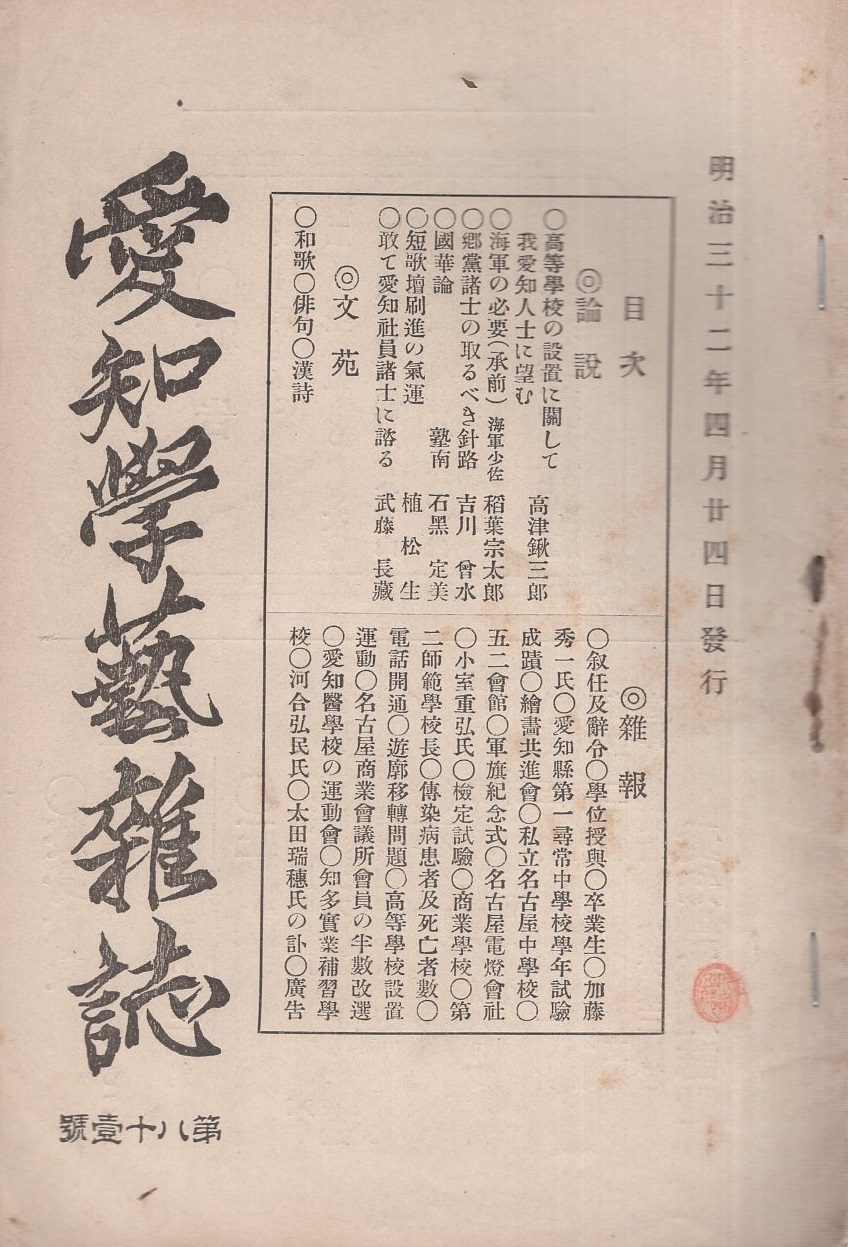 明治三十二年四月廿四日發行
目次
◎論說
○高等學校の設置に關して
我愛知人士に望む 高津鍬三郎
○海軍の必要(承前) 海軍少佐 稻葉宗太郎
○鄕黨諸士の取るべき針路 吉川曾水
○國華論 塾南 石黑定美
○短歌壇刷進の氣運 植松生
○敢て愛知社員諸士に諮る 武藤長藏
◎文苑
○和歌○俳句○漢詩
◎雜報
○叙任及辭令○學位授與○卒業生○加藤
秀一氏○愛知縣第一尋常中學校學年試驗
成蹟○繪畫共進會○私立名古屋中學校○
五二會館○軍旗紀念式○名古屋電燈會社
○小室重弘氏○檢定試驗○商業學校○第
二師範學校長○傳染病患者及死亡者數○
電話開通○遊廓移轉問題○高等學校設置
運動○名古屋商業會議所會員の半數改選
○愛知醫學校の運動會○知多實業補習學
校○河合弘民氏○太田瑞穗氏の訃○廣告
愛知學藝雜誌
第八十壹號